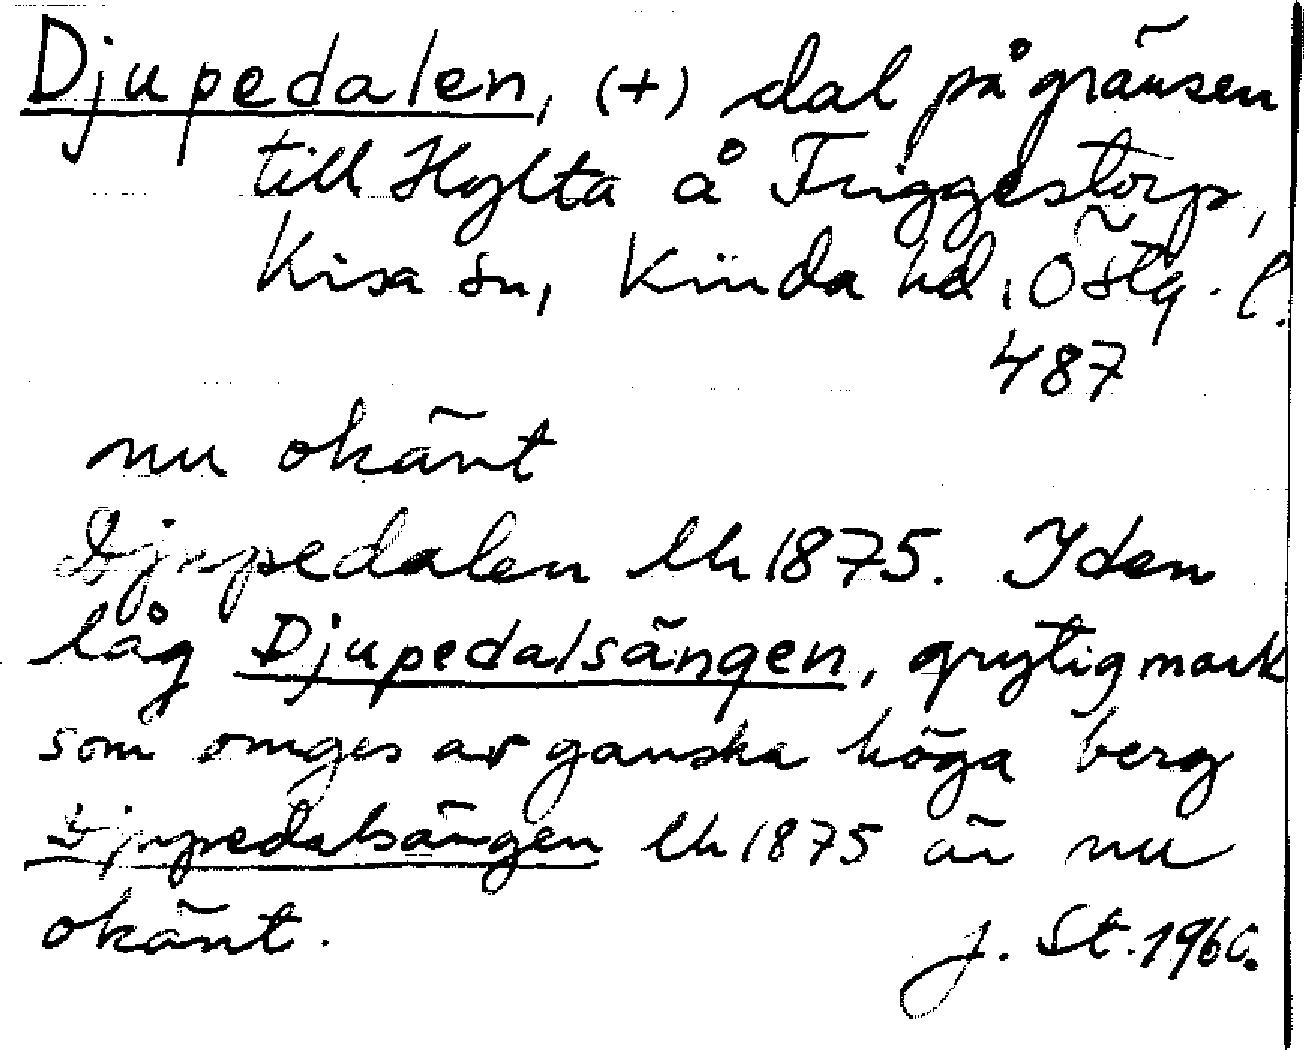 Djupedalen, (+) dal på gränsen
till Hylta å Triggestorp,
Kisa sn, Kinda hd, Östg. l.
487
nu okänt
Djupedalen lh 1875. I den
låg Djupedalsängen, grytig mark
som omges av ganska höga berg
Djupedalsängen lh 1875 är nu
okänt.
J. St. 1960.